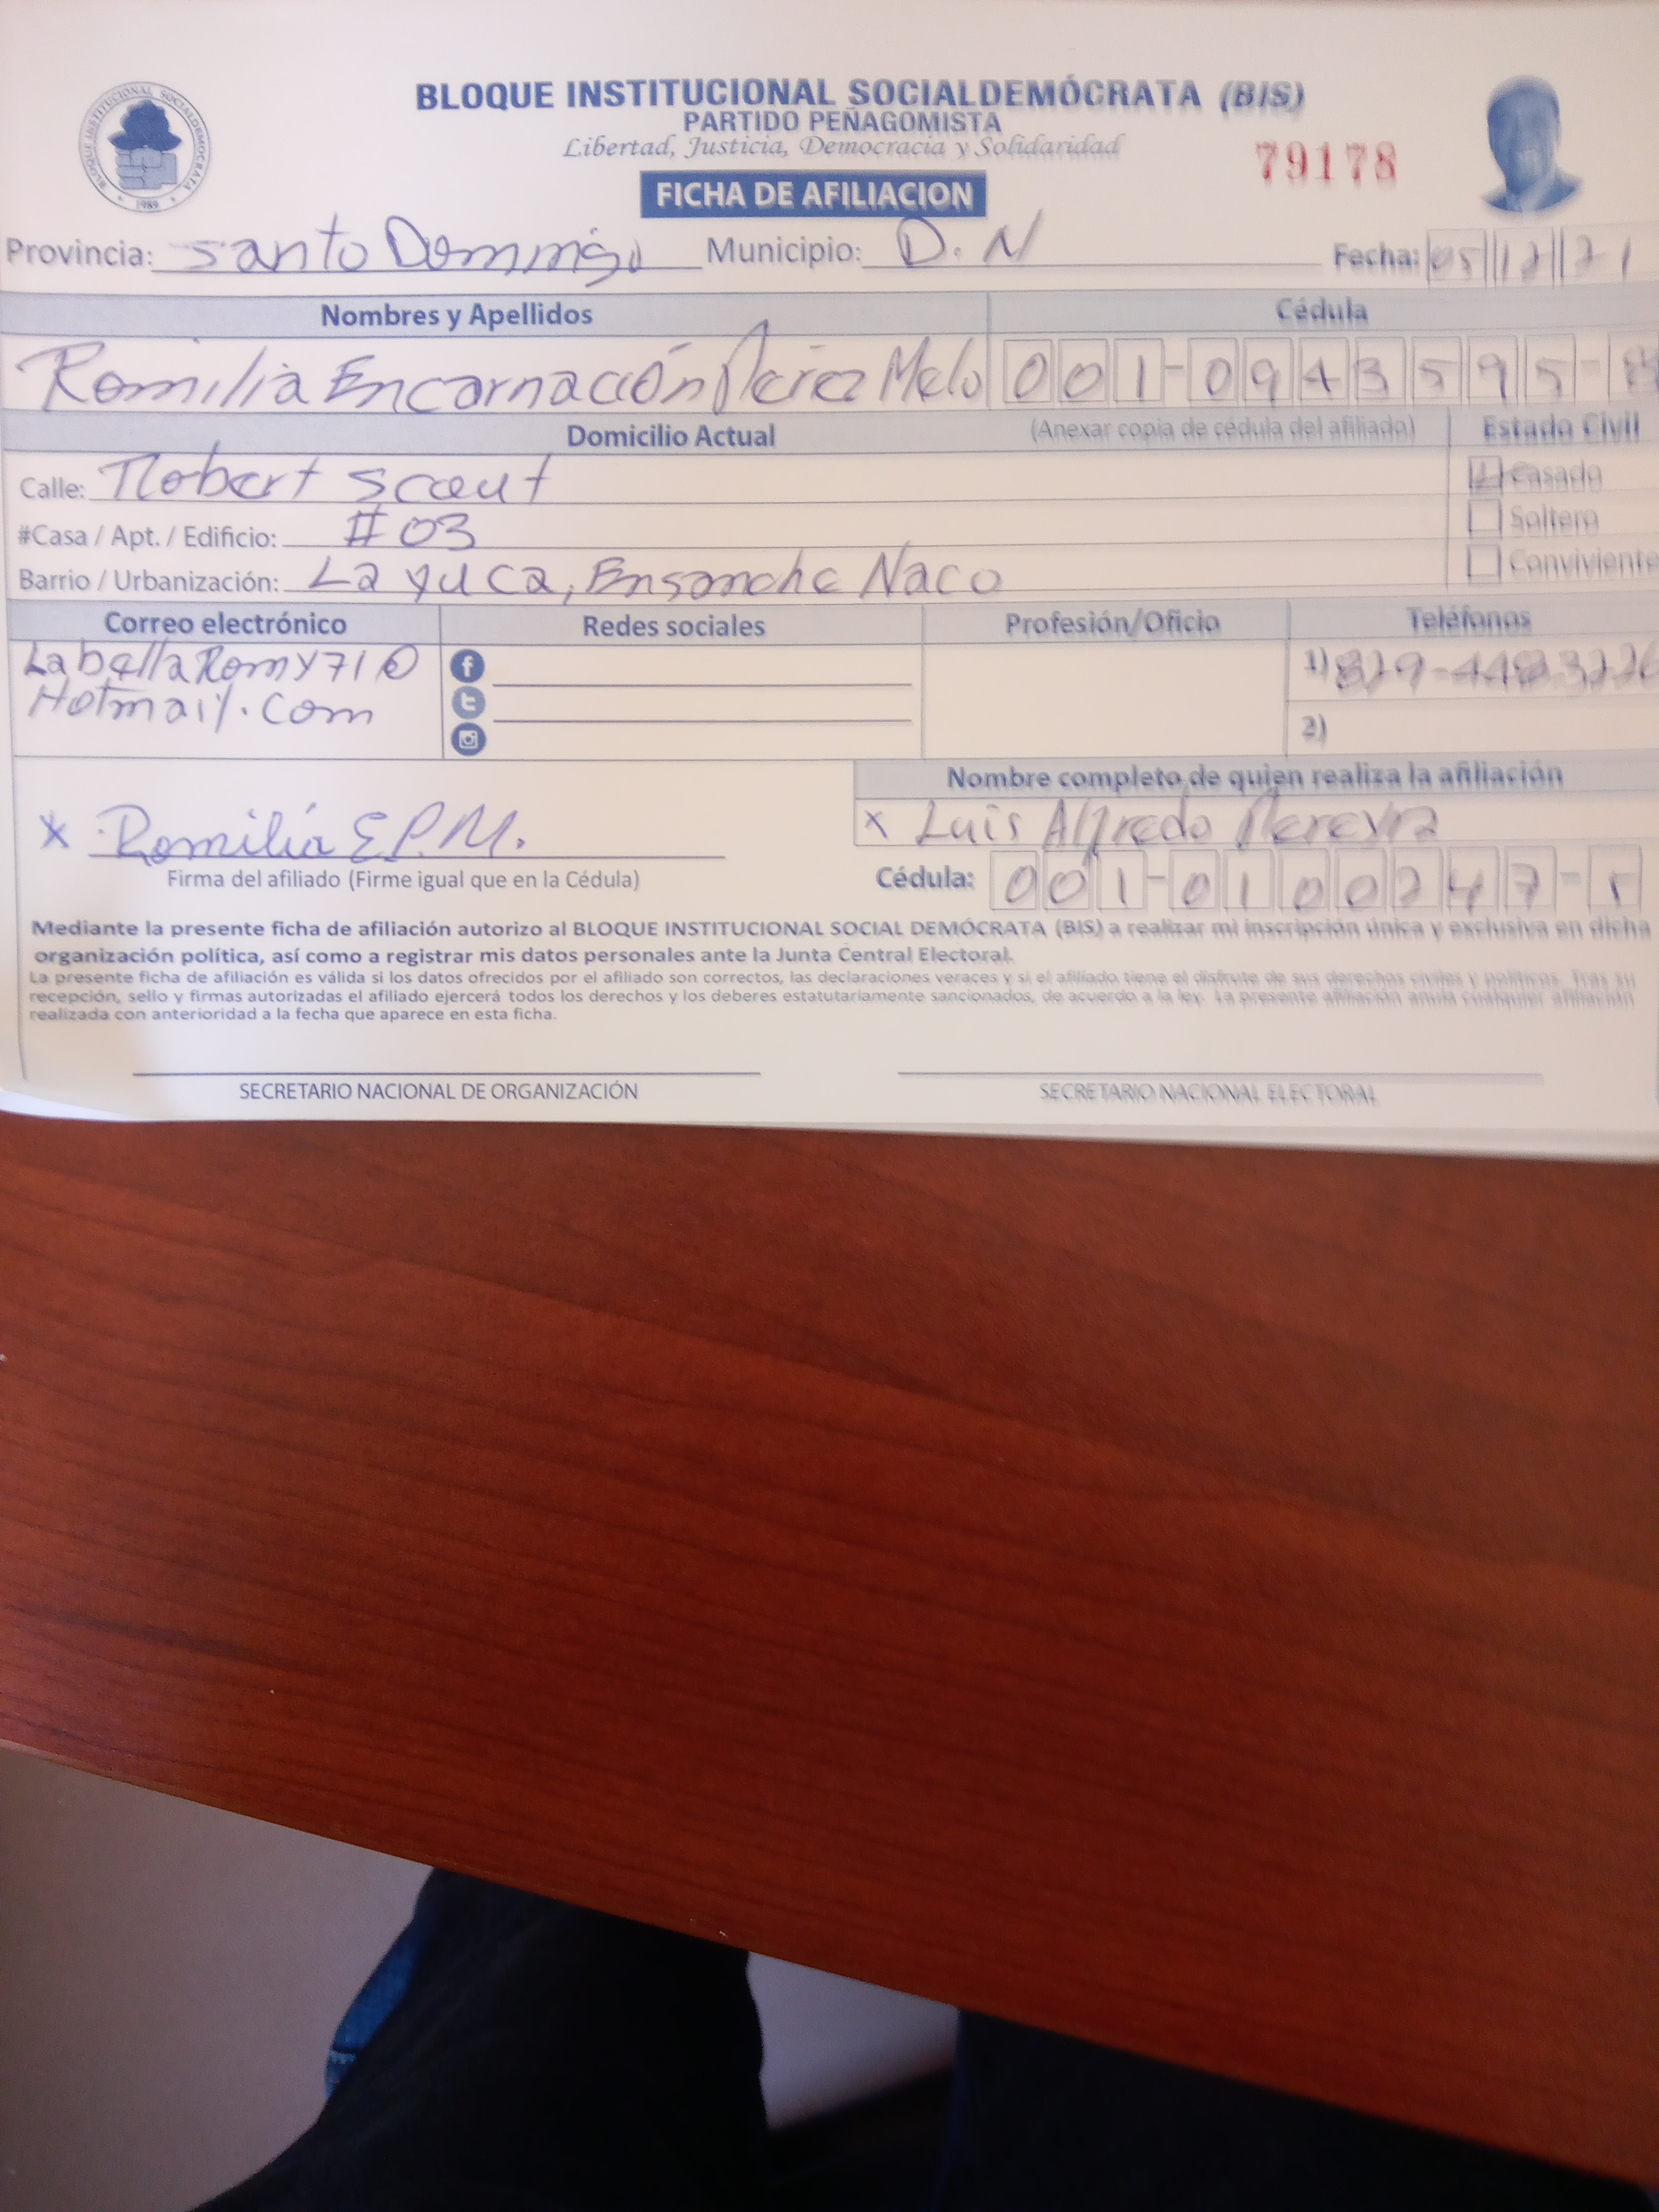 BLOQUE INSTITUCIONAL SOCIALDEMOCRATA 1989
BLOQUE INSTITUCIONAL SOCIALDEMÓCRATA (BIS)
PARTIDO PEÑAGOMISTA
Libertad, Justicia, Democracia y Solidaridad
79178
FICHA DE AFILIACION
Provincia: Santo Domingo Municipio: D. N Fecha: 05 12 21
Nombres y Apellidos Cédula
Romilia Encarnación Perez Melo 001-0943595-
Domicilio Actual (Anexar copia de cédula del afiliado) Estado Civil
Calle: Robert scout Casado
#Casa / Apt. / Edificio: #03 Soltero
Barrio / Urbanización: La yuca, Ensanche Naco Conviviente
Correo electrónico Redes sociales Profesión/Oficio Teléfonos
LabellaRomy71@ 1)
Hotmail.com 2)
Nombre completo de quien realiza la afiliación
x Romilia E P.M. x Luis Alfredo Pereyra
Firma del afiliado (Firme igual que en la Cédula) Cédula: 001-0100247-5
Mediante la presente ficha de afiliación autorizo al BLOQUE INSTITUCIONAL SOCIAL DEMÓCRATA (BIS) a realizar mi inscripción única y exclusiva en dicha
organización política, así como a registrar mis datos personales ante la Junta Central Electoral.
La presente ficha de afiliación es válida si los datos ofrecidos por el afiliado son correctos, las declaraciones veraces y si el afiliado tiene el disfrute de sus derechos civiles y políticos. Tras su
recepción, sello y firmas autorizadas el afiliado ejercerá todos los derechos y los deberes estatutariamente sancionados, de acuerdo a la ley. La presente afiliación anula cualquier afiliación
realizada con anterioridad a la fecha que aparece en esta ficha.
SECRETARIO NACIONAL DE ORGANIZACIÓN SECRETARIO NACIONAL ELECTORAL